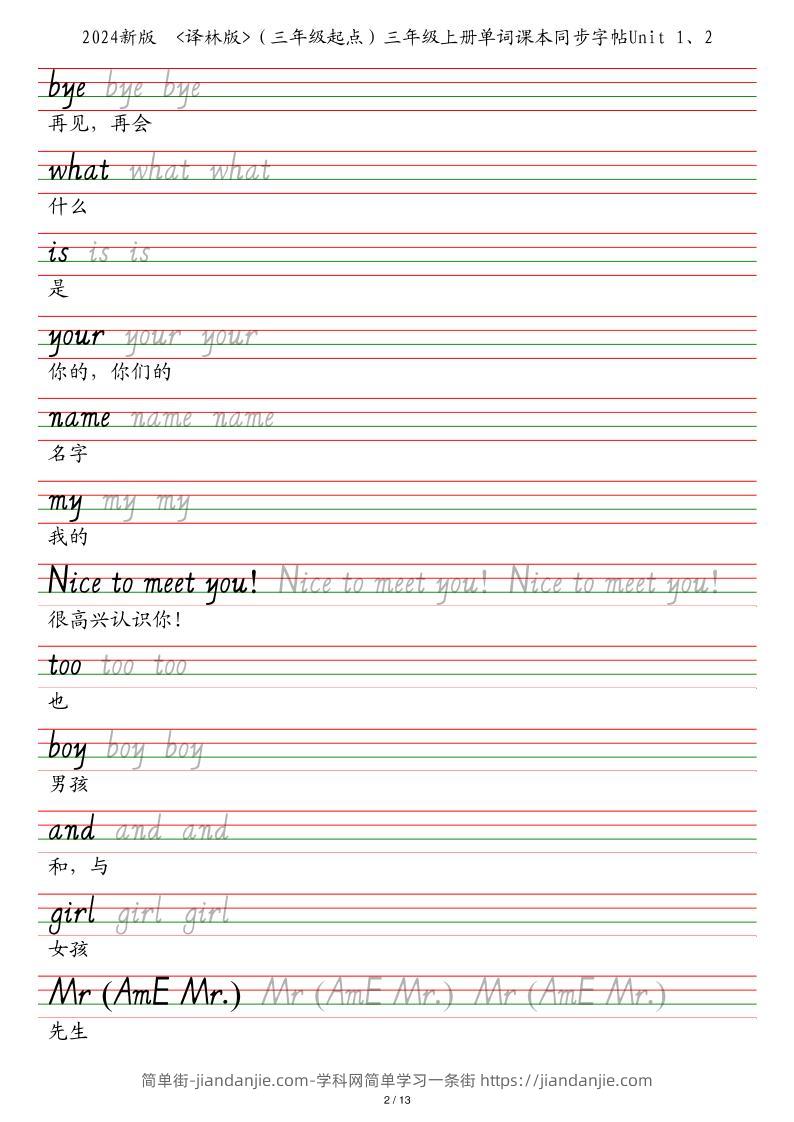 2024新版 <译林版>(三年级起点)三年级上册单词课本同步字帖Unit 1、2
bye bye bye
再见，再会
what what what
什么
is is is
是
your your your
你的，你们的
name name name
名字
my my my
我的
Nice to meet you! Nice to meet you! Nice to meet you!
很高兴认识你！
too too too
也
boy boy boy
男孩
and and and
和，与
girl girl girl
女孩
Mr (AmE Mr.) Mr (AmE Mr.) Mr (AmE Mr.)
先生
简单街-jiandanjie.com-学科网简单学习一条街 https://jiandanjie.com
2 / 13